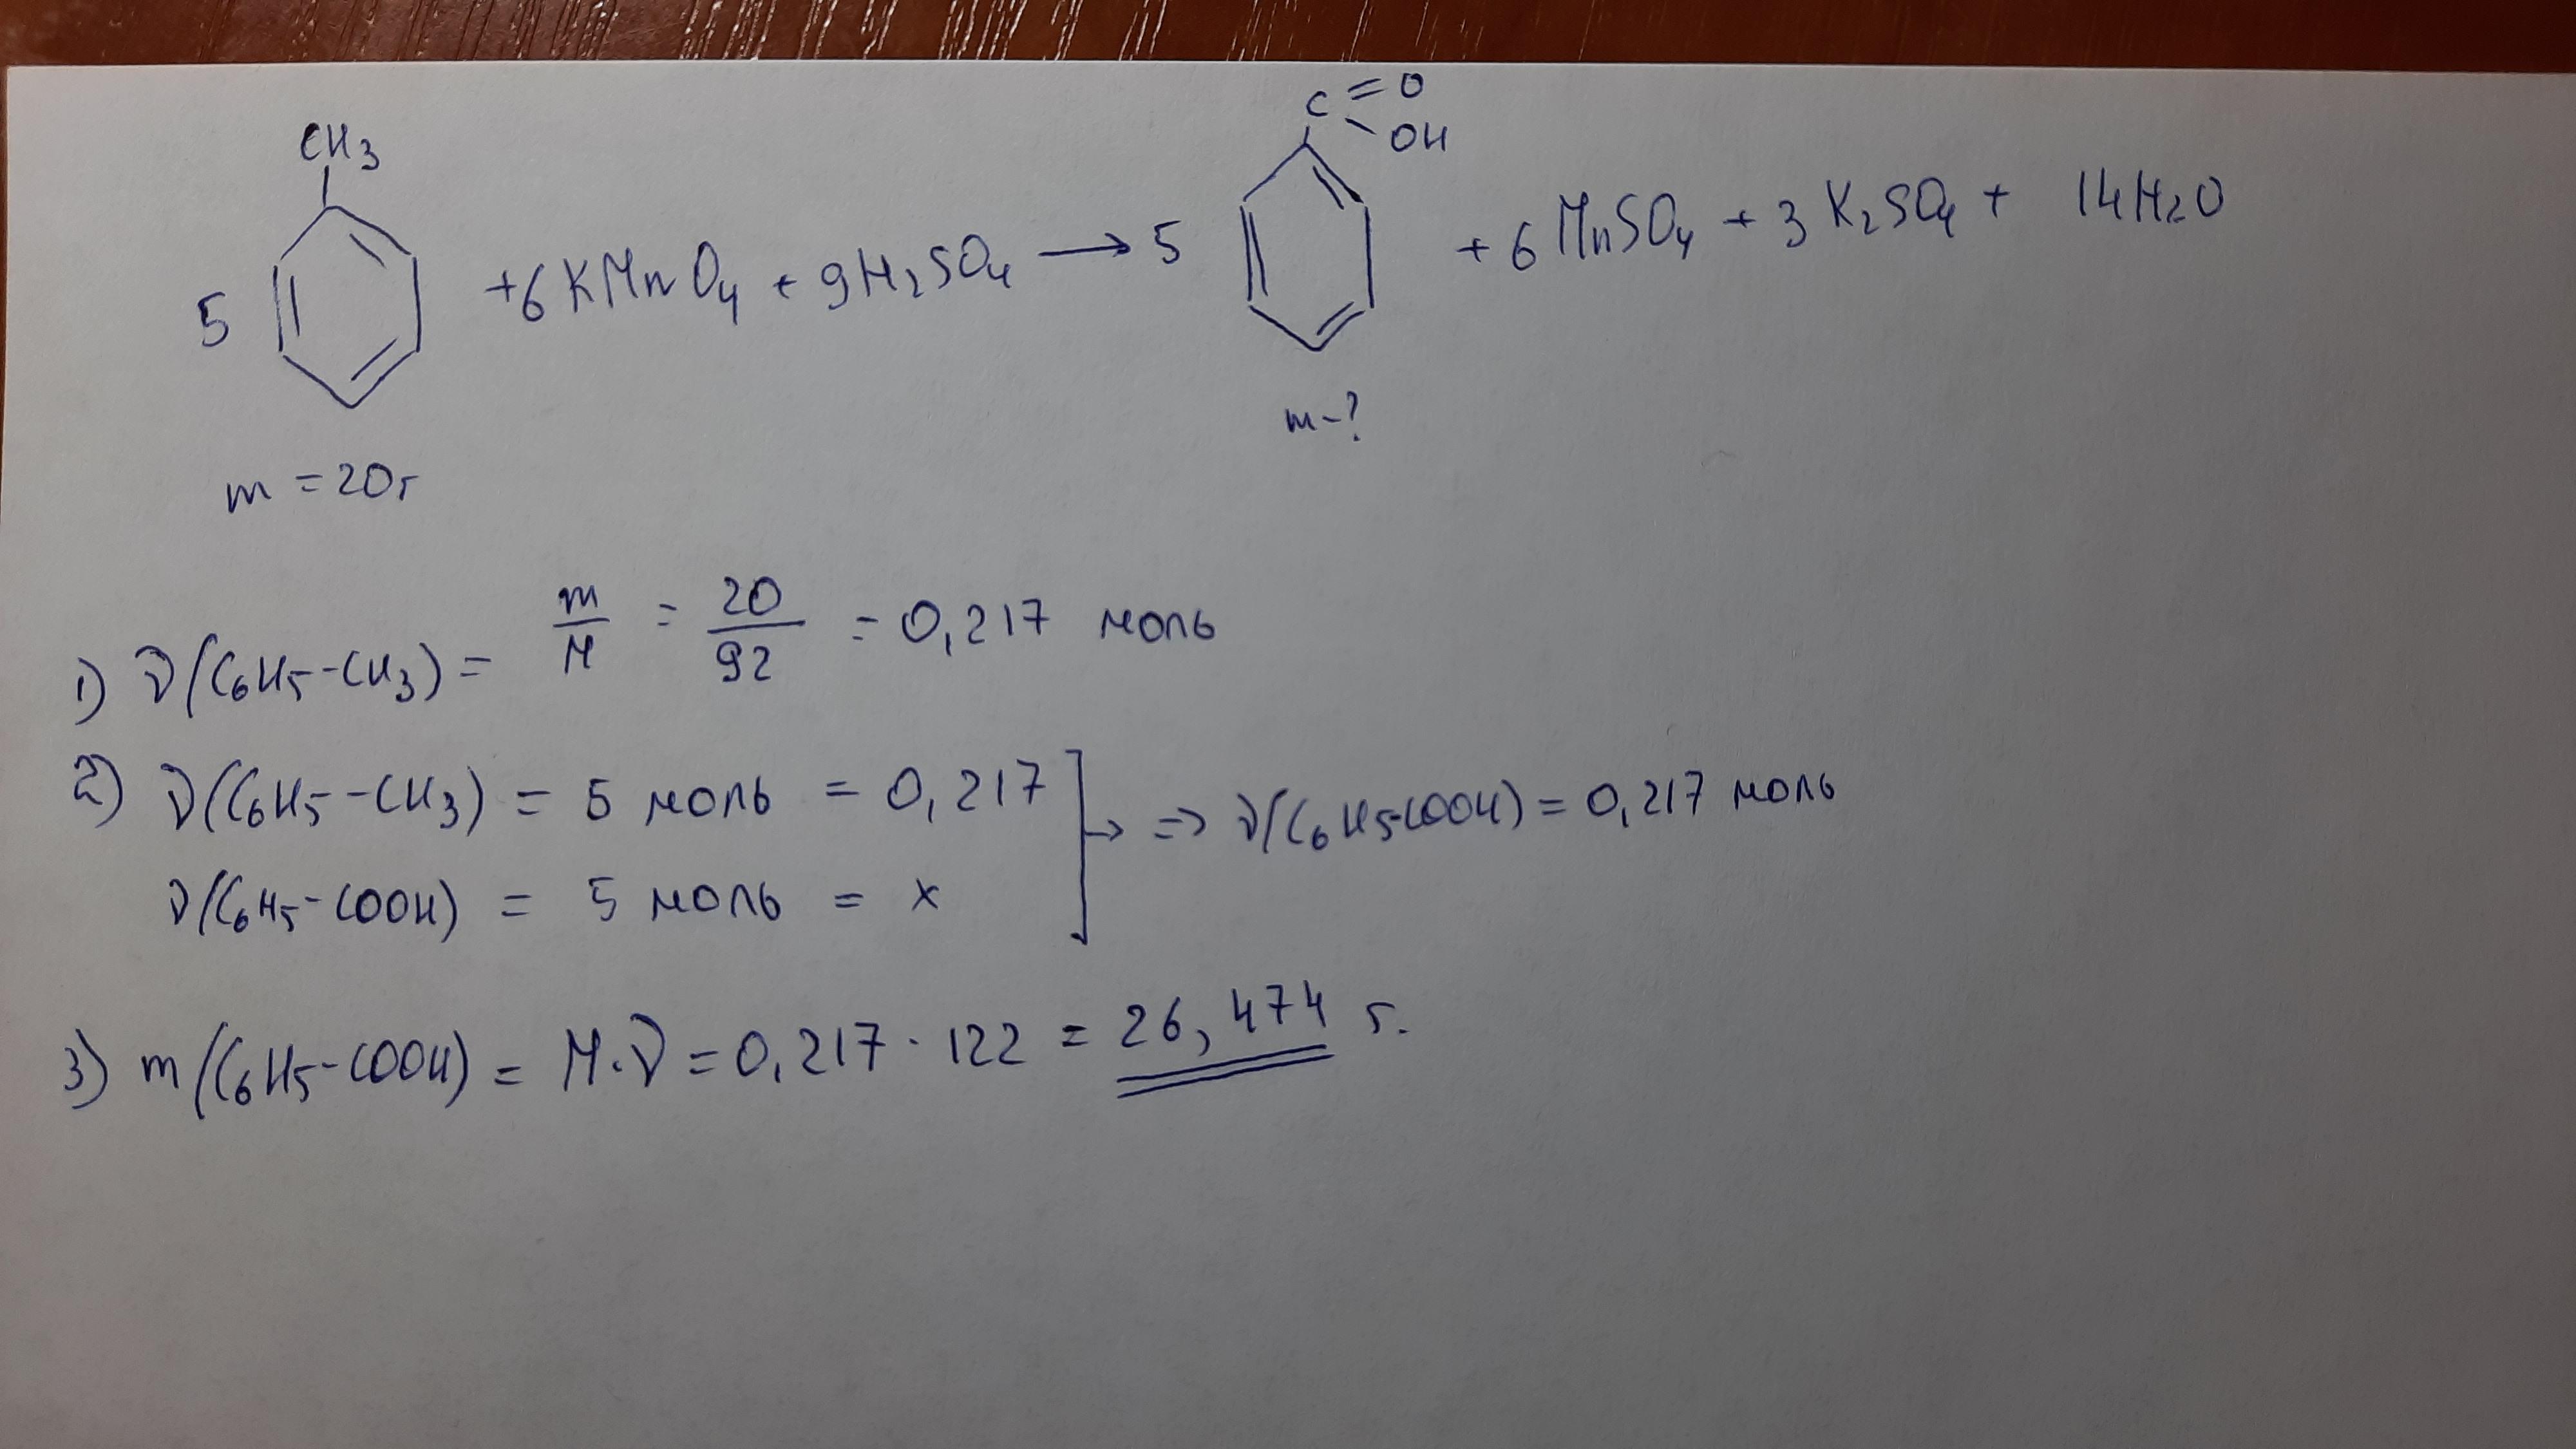 CH3
C=O
OH
5 +6KMnO4 + 9H2SO4 → 5 +6MnSO4 + 3K2SO4 + 14H2O
m-?
m = 20г
1) ν(C6H5-CH3) = m/M = 20/92 = 0,217 моль
2) ν(C6H5-CH3) = 5 моль = 0,217
ν(C6H5-COOH) = 5 моль = x
→ => ν(C6H5-COOH) = 0,217 моль
3) m(C6H5-COOH) = M·ν = 0,217 · 122 = 26,474 г.